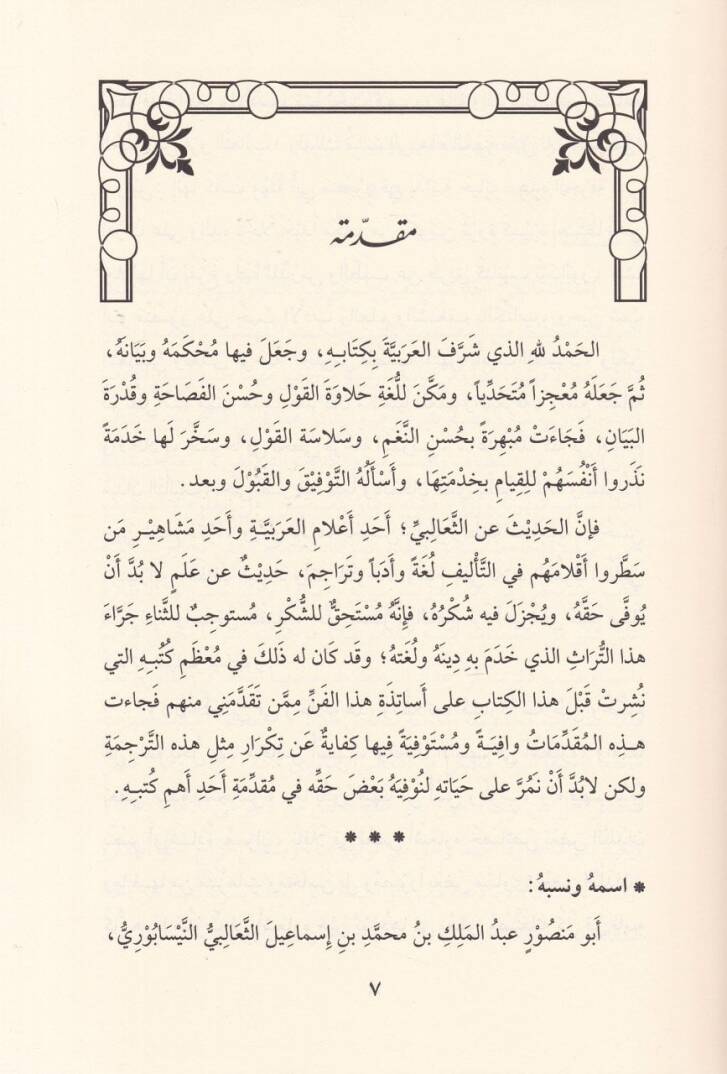 مقدّمته
الحَمْدُ للهِ الذي شَرَّفَ العَرَبَيَّةَ بِكِتَابِهِ، وجَعَلَ فيها مُحْكَمَهُ وبَيَانَهُ،
ثُمَّ جَعَلَهُ مُعْجِزاً مُتَحَدِّياً، ومَكَّنَ للُّغَةِ حَلاوَةَ القَوْلِ وحُسْنَ الفَصَاحَةِ وقُدْرَةَ
البَيَانِ، فَجَاءَتْ مُبْهِرَةً بحُسْنِ النَّغَمِ، وسَلاسَة القَوْلِ، وسَخَّرَ لَها خَدَمَةً
نَذَروا أَنْفُسَهُمْ للقِيامِ بخِدْمَتِهَا، وأَسْأَلُهُ التَّوْفِيْقَ والقَبُوْلَ وبعد.
فإنَّ الحَدِيْثَ عن الثَّعَالِبيِّ؛ أَحَدِ أَعْلامِ العَرَبيَّةِ وأَحَدِ مَشَاهِيْرِ مَن
سَطَّروا أَقْلامَهُم في التَّأْليفِ لُغَةً وأَدَباً وتَراجِمَ، حَدِيْثٌ عن عَلَمٍ لا بُدَّ أَنْ
يُوفَّى حَقَّهُ، ويُجْزَلَ فيه شُكْرُهُ، فإنَّهُ مُسْتَحِقٌّ للشُّكْرِ، مُستوجِبٌ للثَّناءِ جَرَّاءَ
هذا التُّرَاثِ الذي خَدَمَ بهِ دِينَهُ ولُغَتهُ؛ وقَد كَان له ذَلكَ في مُعْظَمِ كُتُبهِ التي
نُشِرتْ قَبْلَ هذا الكِتابِ على أَساتِذَةِ هذا الفَنِّ مِمَّن تَقَدَّمَنِي منهم فَجاءت
هـذِهِ المُقَدِّمَاتُ وافِيَـةً ومُسْتَوْفِيَةً فِيها كِفايةٌ عَن تِكْرَارِ مِثلِ هذه التَّرْجِمَةِ
ولكن لابُدَّ أَنْ نَمُرَّ على حَيَاتهِ لنُوْفِيَهُ بَعْضَ حَقِّه في مُقدِّمَةِ أَحَدِ أَهمِ كُتبهِ.
* * *
* اسمهُ ونسبهُ:
أَبو مَنصُوْرٍ عبدُ المَلِكِ بنُ محمَّدِ بنِ إسماعيلَ الثَّعَالِبيُّ النَّيْسَابُوْرِيُّ،
٧